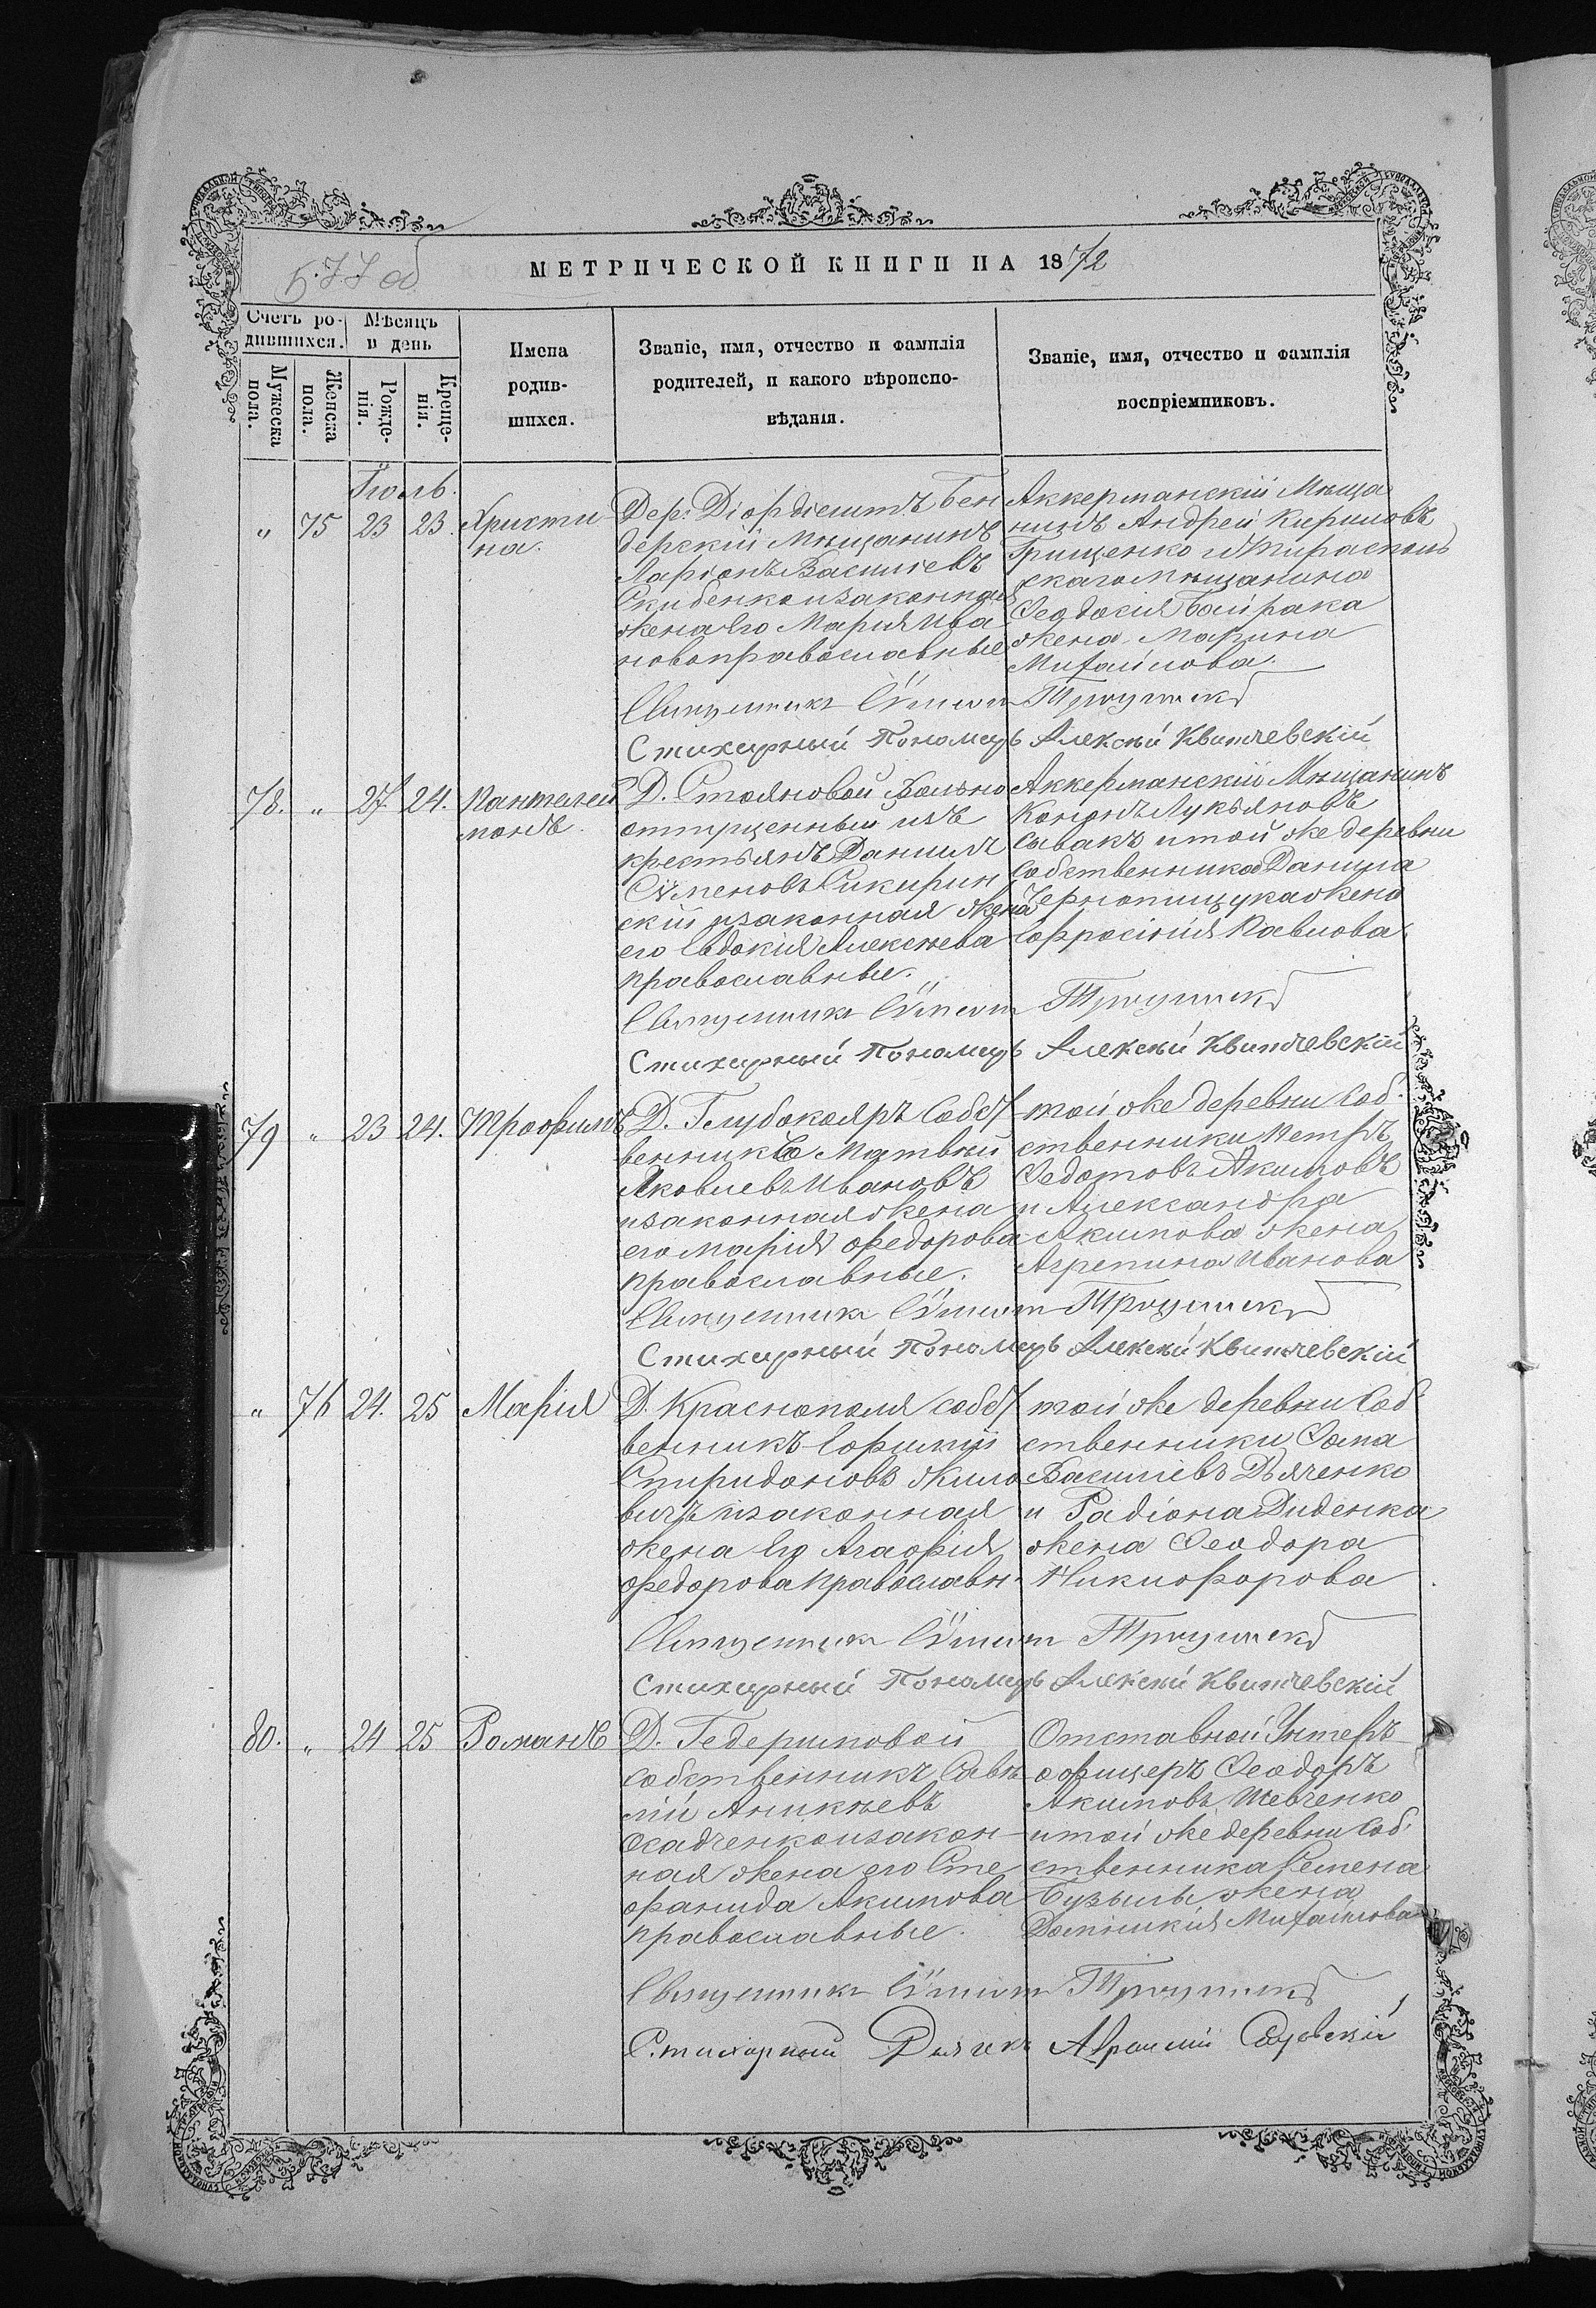 577 об
МЕТРИЧЕСКОЙ КНИГИ НА 1872
Счетъ ро-
дившихся.
Мѣсяцъ
и день
Мужеска
пола.
Женска
пола.
Рожде-
нія.
Креще-
нія.
Имена
родив-
шихся.
Званіе, имя, отчество и фамилія
родителей, и какого вѣроиспо-
вѣданія.
Званіе, имя, отчество и фамилія
воспріемниковъ.
Іюль.
" 75 23 23. Христи
на.
Дер: Бен
дерскій Мѣщанинъ
Ларіонъ Василіевъ
Скибенко и законная
жена Его Марія Ива
нова православные
Аккерманскій Мѣща
нинъ Андрей Кириловъ
Грищенко и Тирасполь
скаго мѣщанина
Ѳеодосія Байрака
жена Марина
Михайлова.
Священникъ
Стихарный Пономарь Алексѣй Квитчевскій
78. " 27. 24. Пантелей
монъ.
Д. Стояновой Вольно
отпущенный изъ
крестьянъ Даніилъ
Сѵменовъ Сикирин
скій и законная жена
его Евдокія Алексѣева
православные.
Аккерманскій Мѣщанинъ
Кононъ Лукьяновъ
Сывакъ и той же деревни
собственника Данила
Чернопищука жена
Ефросинія Павлова
Священникъ
Стихарный Пономарь Алексѣй Квитчевскій
79 " 23 24. Трофимъ
Д. Глубокояръ Собст
венникъ Матвѣй
Яковлевъ Ивановъ
и законная жена
его Марія Федорова
православные.
той же деревни Соб
ственники Петръ
Федотовъ Акимовъ
и Александра
Акимова жена
Агрепина Иванова
Священникъ
Стихарный Пономарь Алексѣй Квитчевскій
" 76 24. 25 Марія
Д. Краснополя собст
венникъ Ефимій
Спиридоновъ Жило
вичъ и законная
жена Его Агафія
Федорова православн.
той же деревни Соб
ственники Ѳома
Василіевъ Дьяченко
и Радіона Диденка
жена Ѳеодора
Никифорова
Священникъ
Стихарный Пономарь Алексѣй Квитчевскій
80. " 24 25 Романъ
Д. Гедеримовой
собственникъ Савѣ
лій Аникѣевъ
Осадченко и закон
ная жена его Сте
фанида Акимова
православные.
Отставной Унтеръ
офицеръ Ѳеодоръ
Акимовъ Шевченко
и той же деревни Соб
ственника Семена
жена
Домникія Михайлова
Священникъ
Стихарный Дьячекъ